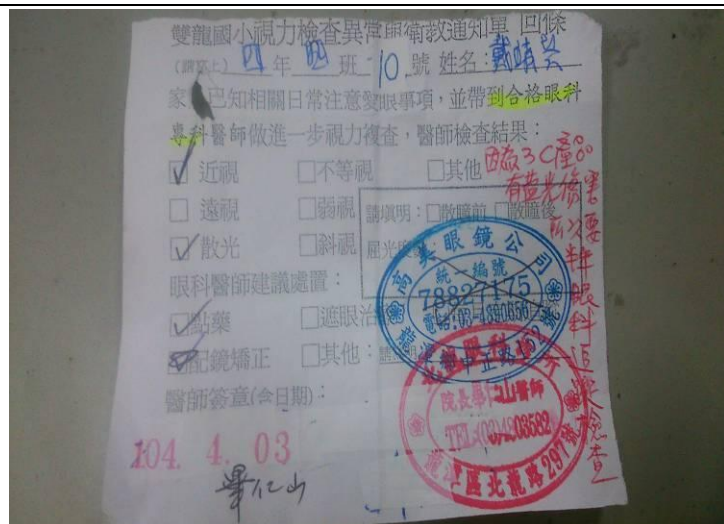 雙龍國小視力檢查異常與衛教通知單 回條
四 年 四 班 10 號 姓名:戴晴
家 已知相關日常注意愛眼事項,並帶到合格眼科
專科醫師做進一步視力複查,醫師檢查結果:
☑近視 □不等視 □其他
□遠視 □弱視 請填明:□散瞳前 □散瞳後
☑散光 □斜視 屈光度
眼科醫師建議處置:
☑點藥 □遮眼治
☑配鏡矯正 □其他:
醫師簽章(含日期):
104. 4. 03
畢仁山
因為3C產品
有藍光傷害
所以要
眼科
檢查
高美眼鏡公司
統一編號
78827175
電話:03-4890656
院長 山醫師
TEL:(03)4203582
區北龍路297號